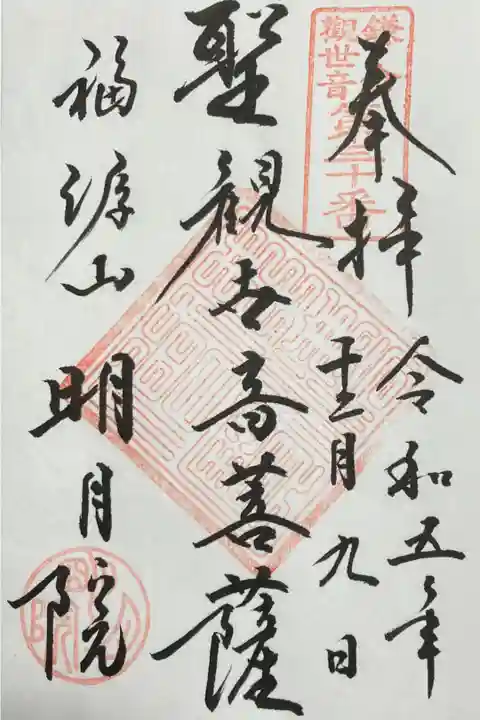 鎌倉
觀世音第三十番
奉拝 令和五年
十二月九日
聖観世音菩薩
福源山 明月院